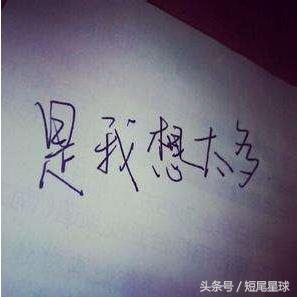 是我想太多
头条号／短尾星球